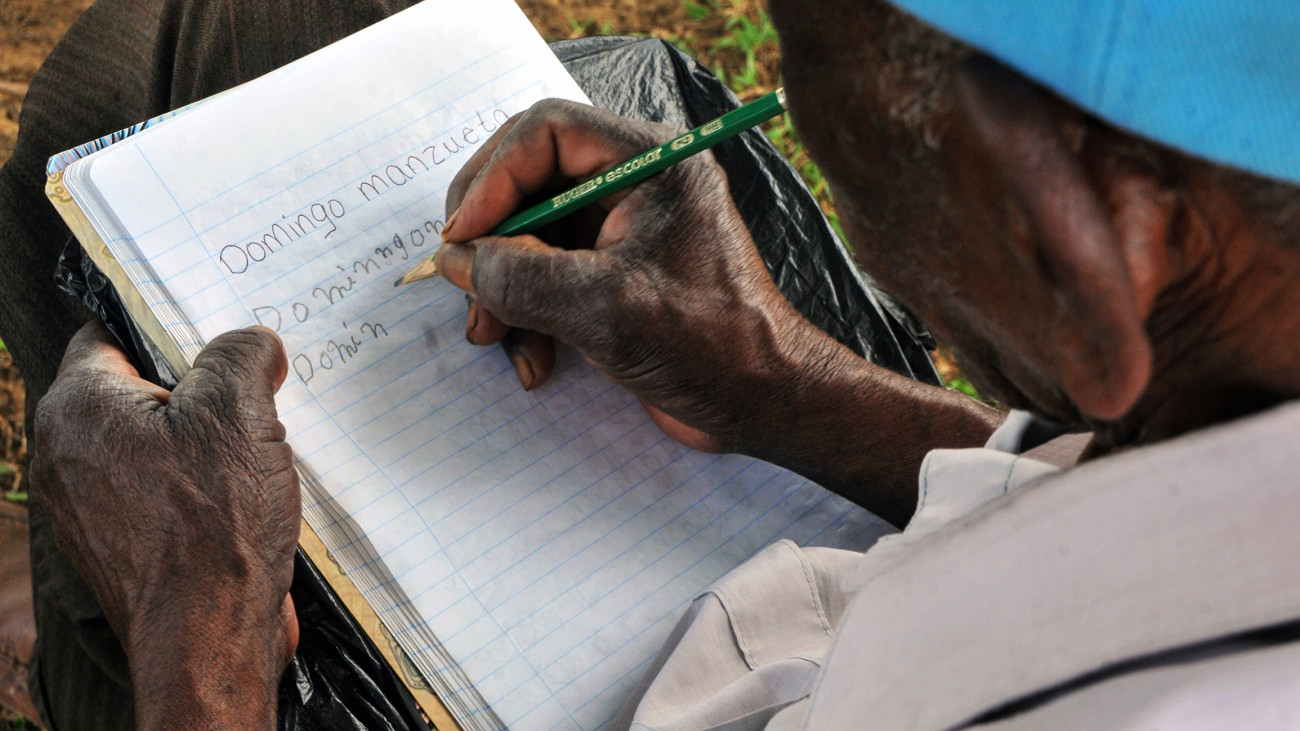 Domingo manzueta
Dominngon
Domin
escolar